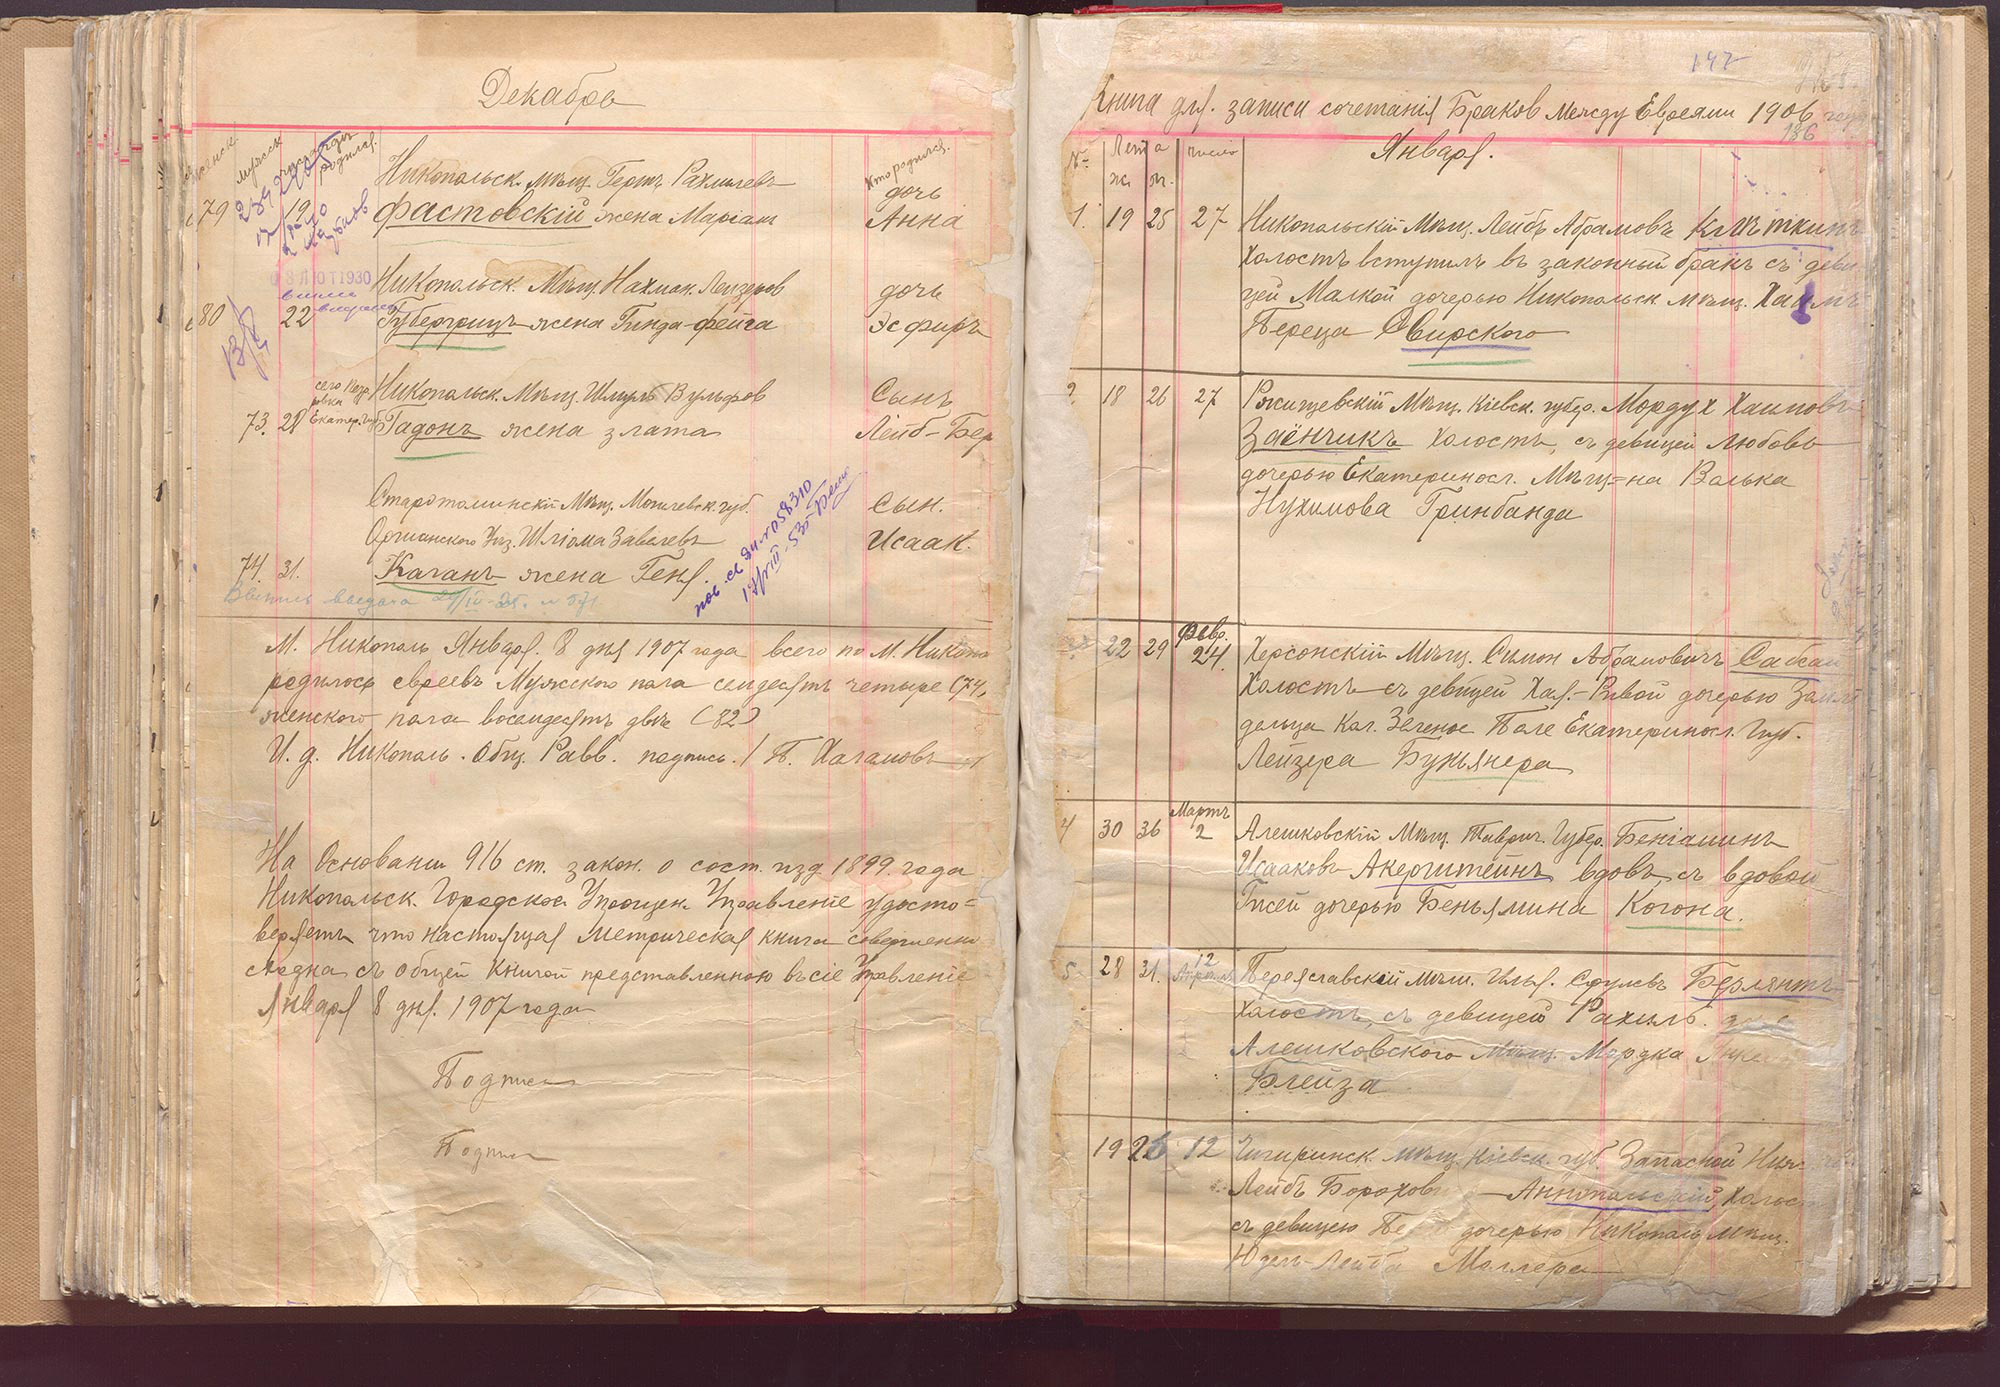 Декабрь
женск.
мужск.
родился.
Кто родился.
Никопольск. Мѣщ. Герть Рахмилевъ
дочь
79 19 Фастовскій жена Маріам
Анна
03 ОКТ 1930
Никопольск. Мѣщ. Нахман. Лейзеров
дочь
80 22 Губергрицъ жена Гинда-Фейга
Эсфирь
Никопольск. Мѣщ. Шмуль Вульфов
Сынъ
73. 28 Екатер. губ. Гадонъ жена Злата
Лейб-Бер
Старотолинскій Мѣщ. Могилевск. губ.
Сын.
Оршанского Уѣз. Шліома Завелевъ
Исаак.
74. 31. Каганъ жена Геня.
Выпись выдана 24/IV-25. № 571
М. Никополь Января 8 дня 1907 года всего по М. Никопо
родилось евреевъ Мужского пола семдесятъ четыре (74,
женского пола восемдесятъ двѣ (82)
И. д. Никополь. Общ. Равв. подпись / П. Хагамовъ
На Основаніи 916 ст. закон. о сост. изд. 1899. года
Никопольск. Городское Упрощен. Управленіе удосто=
веряетъ что настоящая Метрическая книга совершенно
сходна съ общей книгой представленною въ сіе Управленіе
Января 8 дня. 1907 года
Подписи
Подписи
147
Книга для записи сочетанія Браков Между Евреями 1906 года
186
№ Лета число
Января.
ж. м.
1. 19 25 27 Никопольскій Мѣщ. Лейбъ Абрамовъ Клѣткинъ
Холостъ вступилъ въ законный бракъ съ деви
цей Малкой дочерью Никопольск. мѣщ. Хаимъ
Переца Свирского
2. 18 26 27 Ржищевскій Мѣщ. Кіевск. губер. Мордух Хаимовъ
Заёнчикъ Холостъ, съ девицей Любовь
дочерью Екатериносл. Мѣщ-на Волька
Нухимова Гринбанда
Февр.
22 29 24. Херсонскій Мѣщ. Симон Абрамовичъ Сабсай
Холостъ съ девицей Хая-Ривой дочерью Землѣ
дельца Кол. Зеленое Поле Екатериносл. Губ.
Лейзера Букьянера
Мартъ
4 30 36 2 Алешковскій Мѣщ. Таврич. Губер. Беніаминъ
Исааковъ Акерштейнъ вдовъ, съ вдовой
Гисей дочерью Беньямина Когона.
12
5 28 31. Апрѣль Переяславскій мѣщ. Илья. Сруле​въ Берлянтъ
Холостъ, съ девицей Рахиль.
Алешковского Мѣщ. Мордка
Блейза
19 26 12 Чигиринск. мѣщ. Кіевск. губ. Запасной Ниж
Лейбъ Борохов Аннопольскій, Холост
съ девицею дочерью Никополь. мѣщ.
Юзель-Лейба Моллера